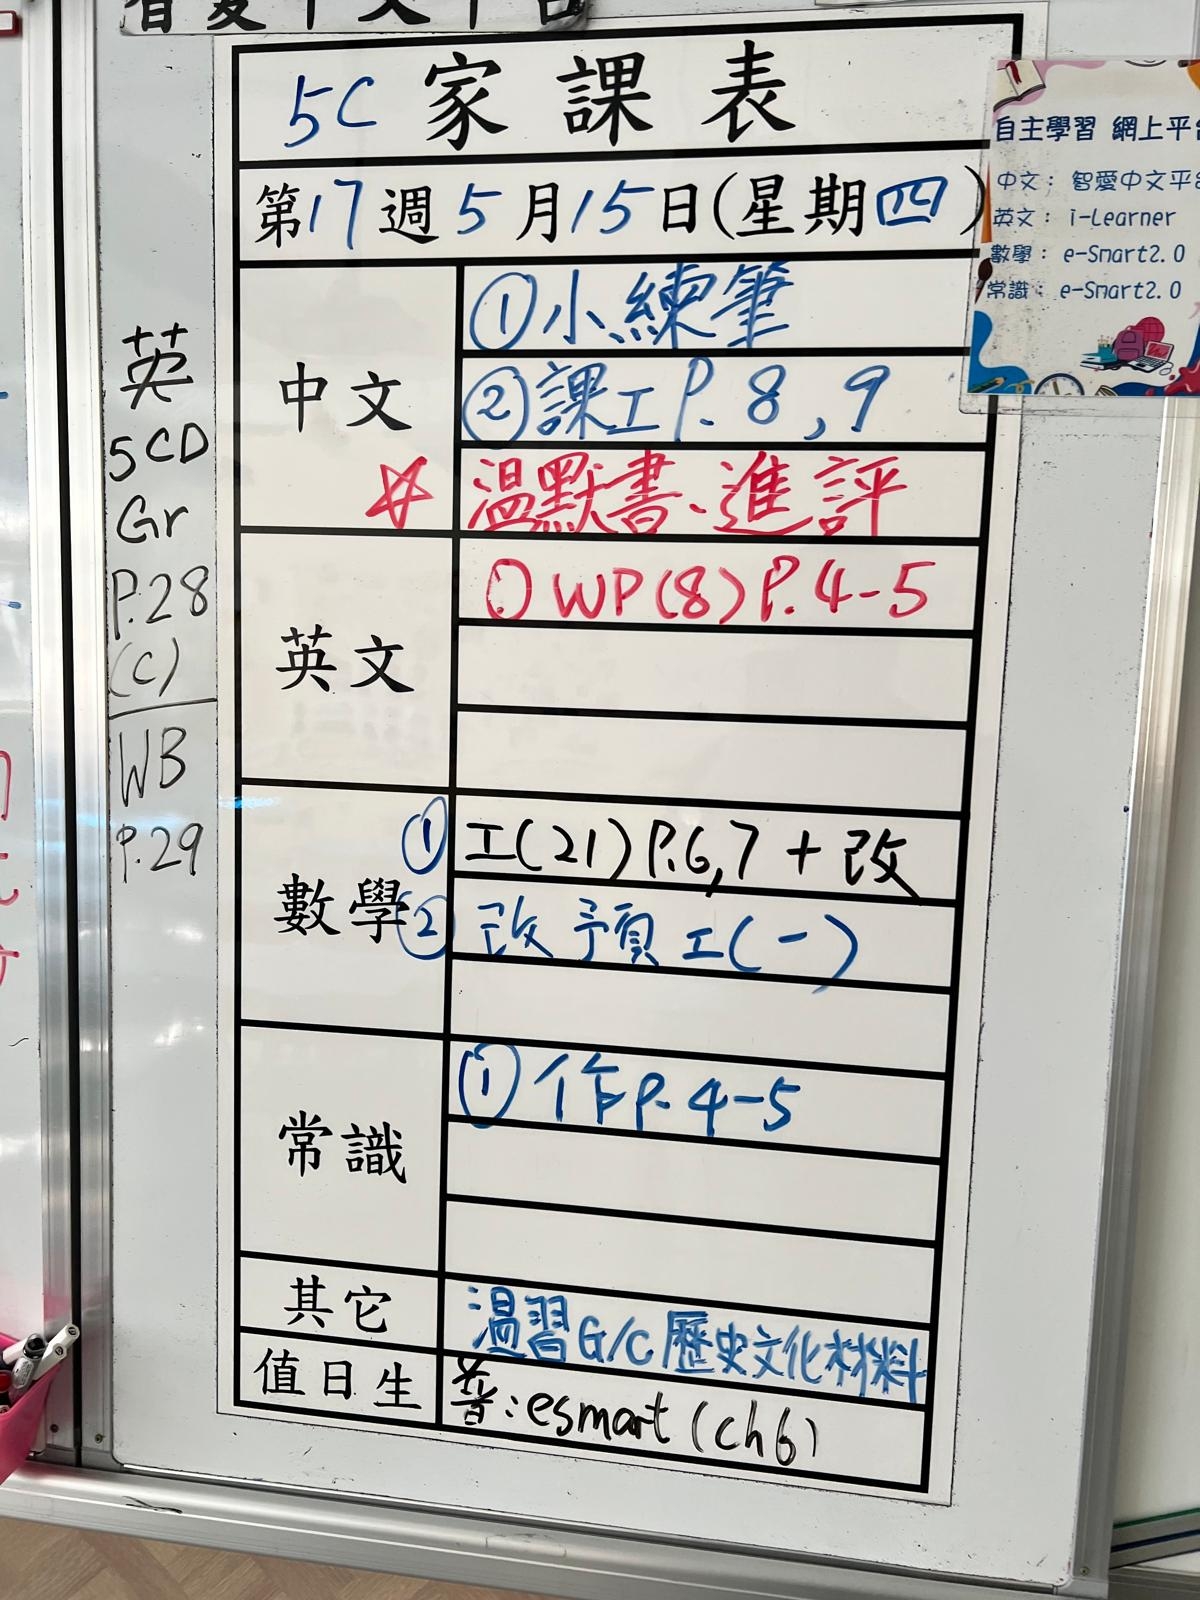 智愛中文平台
5C 家課表
第17週5月15日(星期四)
中文
①小練筆
②課工P.8,9
☆溫默書、進評
英文
① WP(8) P.4-5
數學
① 工(21)P.6,7+改
② 改預工(一)
常識
① 作P.4-5
其它
溫習G/C歷史文化材料
值日生
普:esmart(ch6)
英
5CD
Gr
P.28
(C)
WB
P.29
自主學習 網上平台
中文: 智愛中文平台
英文: i-Learner
數學: e-Smart2.0
常識: e-Smart2.0